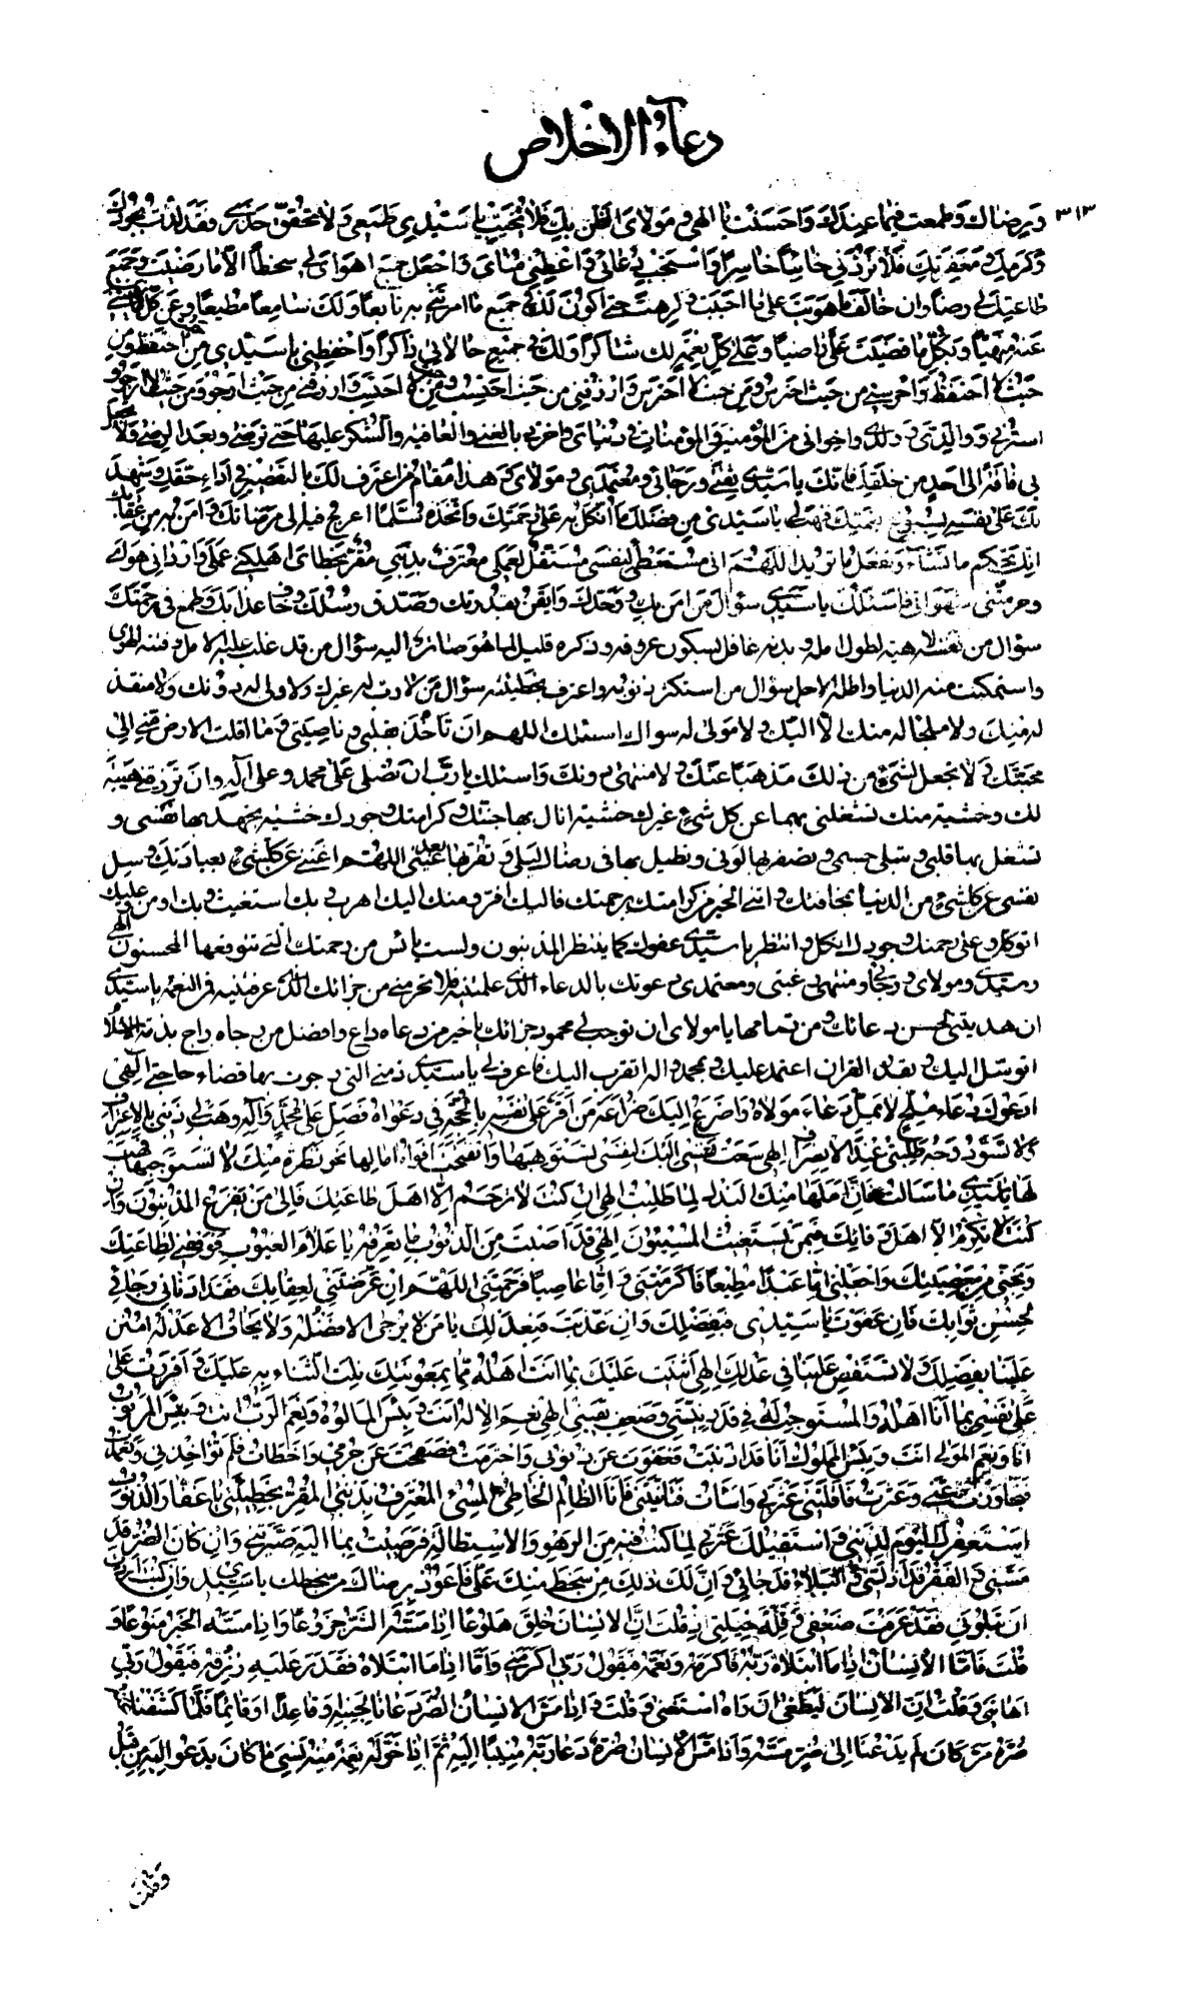 دعآء الاخلاص
٣١٣ وبرضاك وطمعت فيما عندك واحسنت يا الهى ومولاى الظن بك فلا تخيب يا سيدي طمعي ولا تحقق حذري فقد لذت بجودك
وكرمك ومغفرتك فلا تردني خائبا خاسرا واستجب دعائي واعطني مناى واجعل جميع اهواى لي سخطا الا ما رضيت وجميع
طاعتك لي رضا وان خالف ما هويت على ما احببت او كرهت حتى اكون لك في جميع ما امرتني به تابعا ولك سامعا مطيعا وعن كل ما نهيتني
عنه منتهيا وبكل ما قضيت علي راضيا وعلى كل نعمة لك شاكرا ولك في جميع حالاتي ذاكرا واحفظني يا سيدي من حيث احتفظ ومن
حيث لا احتفظ واحرسني من حيث احترس ومن حيث لا احترس وارزقني من حيث احتسب ومن حيث لا احتسب وارزقني من حيث ارجو ومن حيث لا ارجو و
استرني ووالدي وولدى واخواني من المؤمنين والمؤمنات في دنياى واخرتي بالغنى والعافية والشكر عليها حتى ترضى وبعد الرضى ولا تجعل
بي فاقة الى احد من خلقك فانك يا سيدي ثقتي ورجائي ومعتمدي ومولاى وهذا مقام من اعترف لك بالتقصير في اداء حقك وشهد
لك على نفسه بسبوغ نعمتك فهب لي يا سيدي من فضلك ما اتكل به على رحمتك واتخذه سلما اعرج فيه الى مرضاتك وامن به من عقابك
انك تحكم ما تشآء وتفعل ما تريد اللهم اني مستبطئ لنفسي مستقل لعملي معترف بذنبي مقر بخطاى اهلكني عملي وارداني هواى
وحرمتني شهواتي فاسئلك يا سيدي سؤال من امن بك ووحدك وايقن بقدرتك وصدق رسلك وخاف عذابك وطمع في رحمتك
سؤال من نفسه لاهية لطول امله وبدنه غافل لسكون عروقه وذكره قليل لما هو صائر اليه سؤال من قد غلب عليه الامل وفتنه الهوى
واستمكنت منه الدنيا واظله الاجل سؤال من استكثر ذنوبه واعترف بخطيئته سؤال من لا رب له غيرك ولا ولي له دونك ولا منقذ
له منك ولا ملجا له منك الا اليك ولا مولى له سواك اسئلك اللهم ان تأخذ بقلبي وناصيتي وما اقلت الارض مني الى
محبتك ولا تجعل لشىء من ذلك مذهبا عنك ولا منتهى دونك واسئلك يا رب ان تصلى على محمد وعلى اله وان ترزقني هيبة
لك وخشية منك تشغلني بهما عن كل شىء غيرك خشية انال بها جنتك وكرامتك وجودك خشية تجهد بها نفسى و
تشغل بها قلبي وتبلي جسمي وتصفر بها لوني وتطيل بها في رضاك ليلي وتقر بها بعد عيني اللهم اغنني عن كل شىء بعبادتك وسل
نفسي عن كل شىء من الدنيا بمخافتك واتني الخير من كرامتك برحمتك فاليك افر ومنك اليك اهرب وبك استغيث وبك اومن وعليك
اتوكل وعلى رحمتك وجودك اتكل وانتظر يا سيدي عفوك كما ينتظر المذنبون ولست بائس من رحمتك التي يتوقعها المحسنون الهي
وسيدي ومولاى ورجاى ومنتهى رغبتي ومعتمدي دعوتك بالدعاء الذي علمتنيه فلا تحرمني من جزائك الذي عرفتنيه فمن النعمة يا سيدي
ان هديتني لحسن دعائك ومن تمامها يا مولاى ان توجب لي محمود جزائك يا خير من دعاه داع وافضل من رجاه راج بذمة الاسلام
اتوسل اليك وبحق القران اعتمد عليك وبمحمد واله اتقرب اليك فاعرف لي يا سيدي ذمتي التي رجوت بها قضاء حاجتي الهي
ادعوك دعاء ملح لا يمل دعاء مولاه واضرع اليك ضراعة من اقر على نفسه بالحجة في دعواه فصل على محمد وآله وهب لي ذنبي بالاعتراف
ولا تسود وجه طلبتي عند الانصراف الهي سعت نفسي اليك لنفسي تستوهبها وانفتحت افواه امالها نحو نظرة منك لا تستوجبها فهب
لها يا سيدي ما سالت فان املها منك البذل لما طلبت الهي ان كنت لا ترحم الا اهل طاعتك فالى من يفزع المذنبون وان
كنت لا تكرم الا اهل وفائك فبمن يستغيث المسيئون الهي قد اصبت من الذنوب ما تعرفه يا علام الغيوب فوفقني لطاعتك
ونجني من معصيتك واجعلني اما عبدا مطيعا فاكرمتني واما عاصيا فرحمتني اللهم ان عرضتني لعقابك فقد ادناني رجائي
لحسن ثوابك فان عفوت يا سيدي فبفضلك وان عذبت فبعدلك يا من لا يرجى الا فضله ولا يخاف الا عدله امنن
علينا بفضلك ولا تستقص علينا في عدلك الهي اثنيت عليك بما انت اهله مما بمعونتك نلت الثناء به عليك واقررت على
على نفسي بما انا اهله والمستوجب له في قدر نيتي وضعف يقيني الهي نعم الاله انت وبئس المالوه ونعم الرب انت وبئس المربوب
انا ونعم المولى انت وبئس المملوك انا قد اذنبت فعفوت عن ذنوبي واجرمت فصفحت عن جرمي واخطات فلم تؤاخذني وتعمدت
فتجاوزت عني وعثرت فاقلتني عثرتي واسات فتانيتني فانا الظالم الخاطئ المسىء المعترف بذنبي المقر بخطيئتي يا غفار الذنوب
استغفرك اليوم لذنبي واستقيلك عثرتي لما كنت فيه من الزهو والاستطالة فرضيت بما اليه صيرتني وان كان الضر قد
مسني والفقر قد اذلني والبلاء قد جاءني وان لك ذلك من سخط منك علي فاعوذ برضاك من سخطك يا سيدي وان كنت اردت
ان تبلوني فقد عرفت ضعفي وقلة حيلتي اذ قلت ان الانسان خلق هلوعا اذا مسه الشر جزوعا واذا مسه الخير منوعا و
قلت فاما الانسان اذا ما ابتلاه ربه فاكرمه ونعمه فيقول ربي اكرمن واما اذا ما ابتلاه فقدر عليه رزقه فيقول ربي
اهانني وقلت ان الانسان ليطغى ان راه استغنى وقلت واذا مس الانسان الضر دعانا لجنبه او قاعدا او قائما فلما كشفنا عنه
ضره مر كان لم يدعنا الى ضر مسه واذا مس الانسان ضر دعا ربه منيبا اليه ثم اذا خوله نعمة منه نسي ما كان يدعو اليه من قبل
وقلت